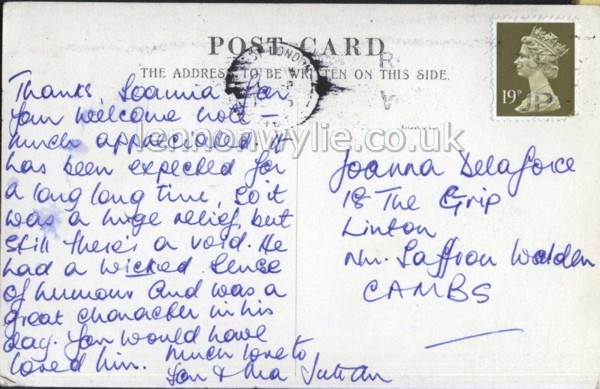 POST CARD
THE ADDRESS TO BE WRITTEN ON THIS SIDE.
LONDON
19P
lennonwylie.co.uk
Thanks, Joanna for
your welcome note –
much appreciated. It
has been expected for
a long long time, so it
was a huge relief, but
still there's a void. He
had a wicked sense
of humour and was a
great character in his
day. You would have
loved him. Much love to
you &
Joanna Delaforce
18 The Grip
Linton
Nr. Saffron Walden
CAMBS